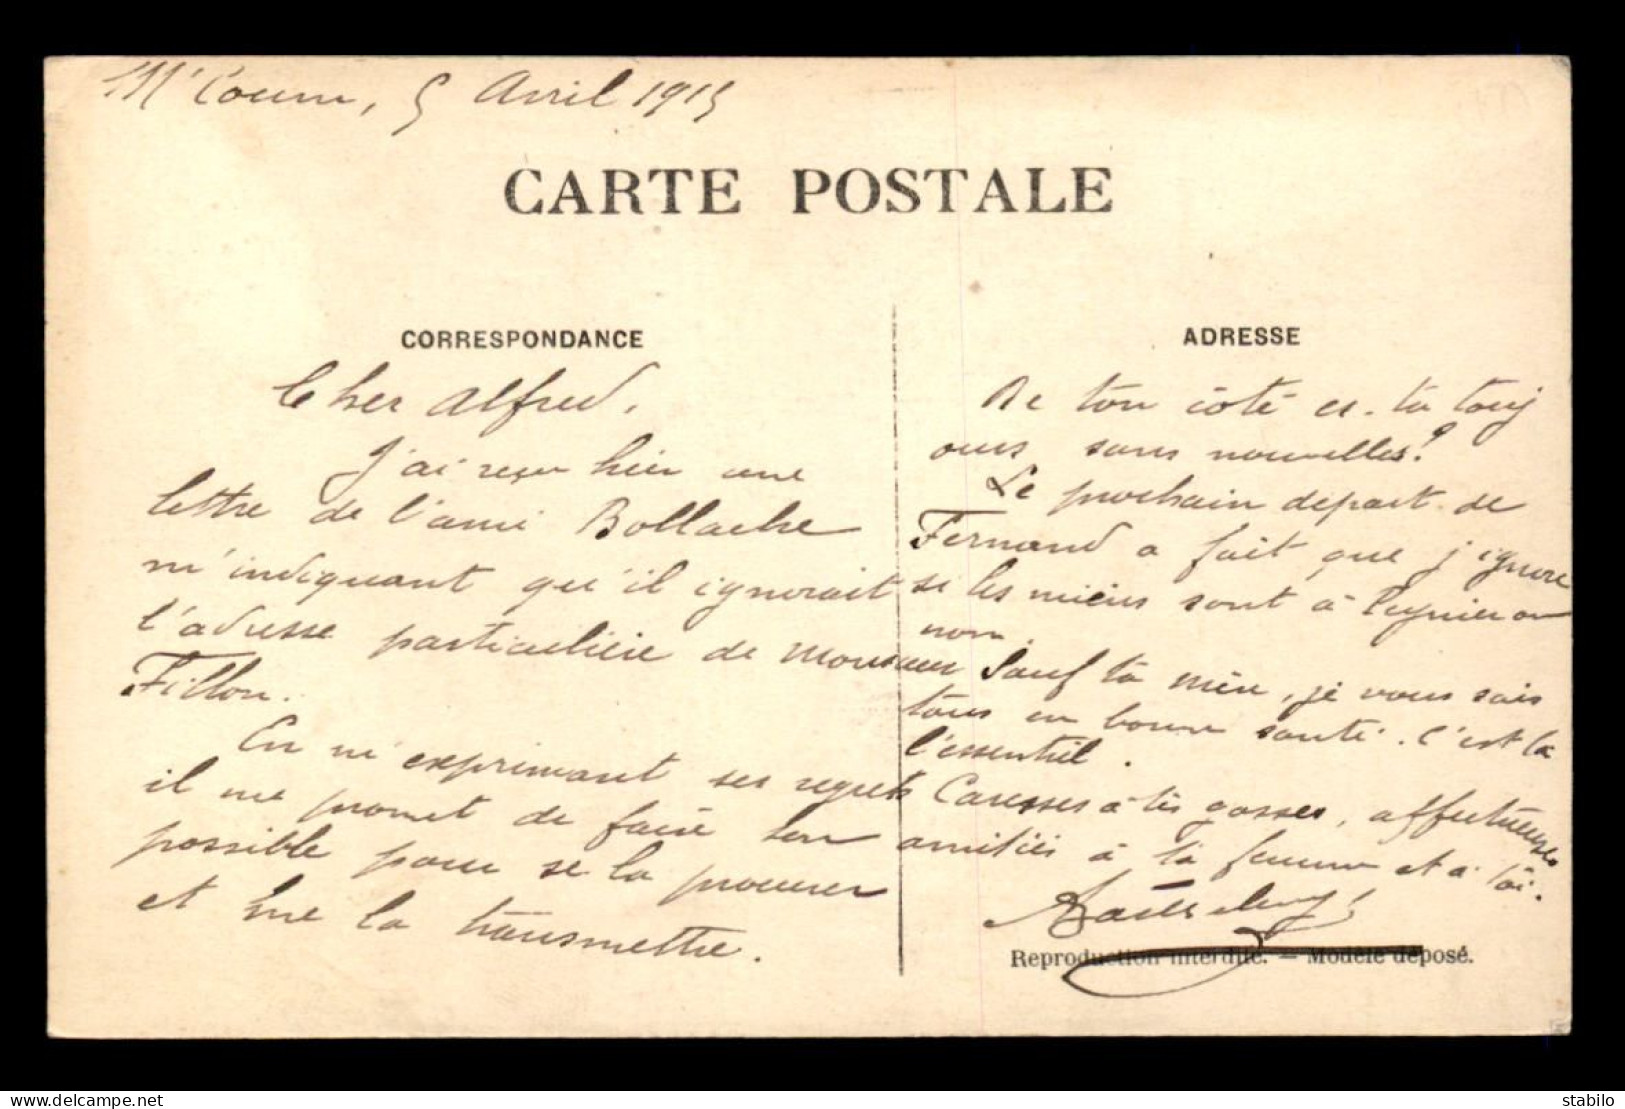 5 Avril 1915
CARTE POSTALE
CORRESPONDANCE
Cher Alfred.
J'ai reçu hier une
lettre de l'ami Bollache
m'indiquant qu'il ignorait
l'adresse particulière de Monsieur
Fillon.
En m'exprimant ses regrets
il me promet de faire son
possible pour se la procurer
et me la transmettre.
ADRESSE
De ton côté es-tu touj
ours sans nouvelles?
Le prochain départ de
Fernand a fait que j'ignore
si les miens sont à ou
non.
Sauf ta mère, je vous sais
tous en bonne santé. C'est là
l'essentiel.
Caresses à tes gosses, affectueuses
amitiés à ta femme et à toi.
Reproduction interdite. — Modèle déposé.
stabilo